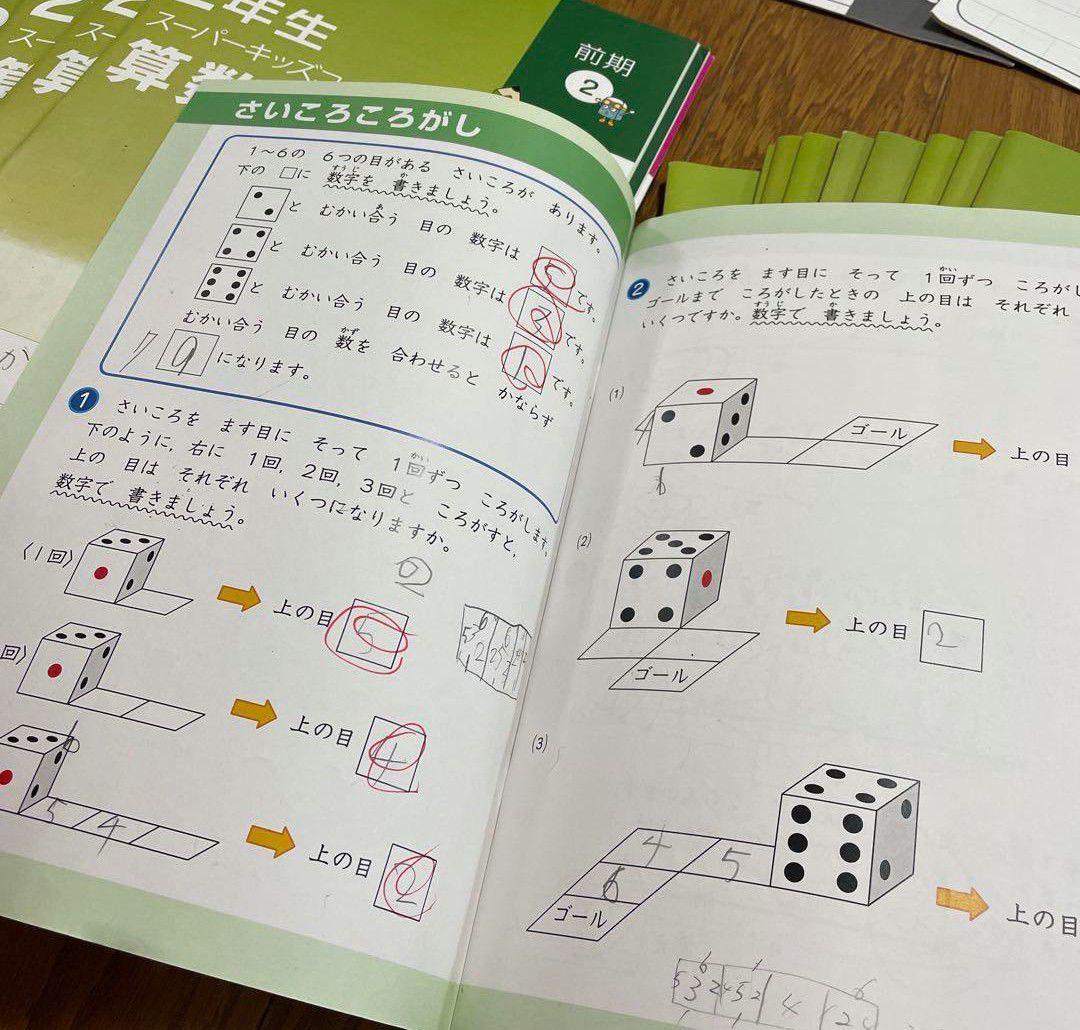 二年生
スーパーキッズ
算数
前期
2
さいころころがし
1~6の 6つの目がある さいころが あります。
下の □に 数字を 書きましょう。
と むかい合う 目の 数字は 5 です。
と むかい合う 目の 数字は 3 です。
と むかい合う 目の 数字は 1 です。
むかい合う 目の 数を 合わせると かならず
7 になります。
1 さいころを ます目に そって 1回ずつ ころがします。
下のように,右に 1回,2回,3回と ころがすと,
上の 目は それぞれ いくつになりますか。
数字で 書きましょう。
〈1回〉
上の目 5
回〉
上の目 4
5 4
上の目 2
2 さいころを ます目に そって 1回ずつ ころがし
ゴールまで ころがしたときの 上の目は それぞれ
いくつですか。数字で 書きましょう。
(1)
ゴール
上の目
(2)
ゴール
上の目 2
(3)
4 5
6
ゴール
上の目